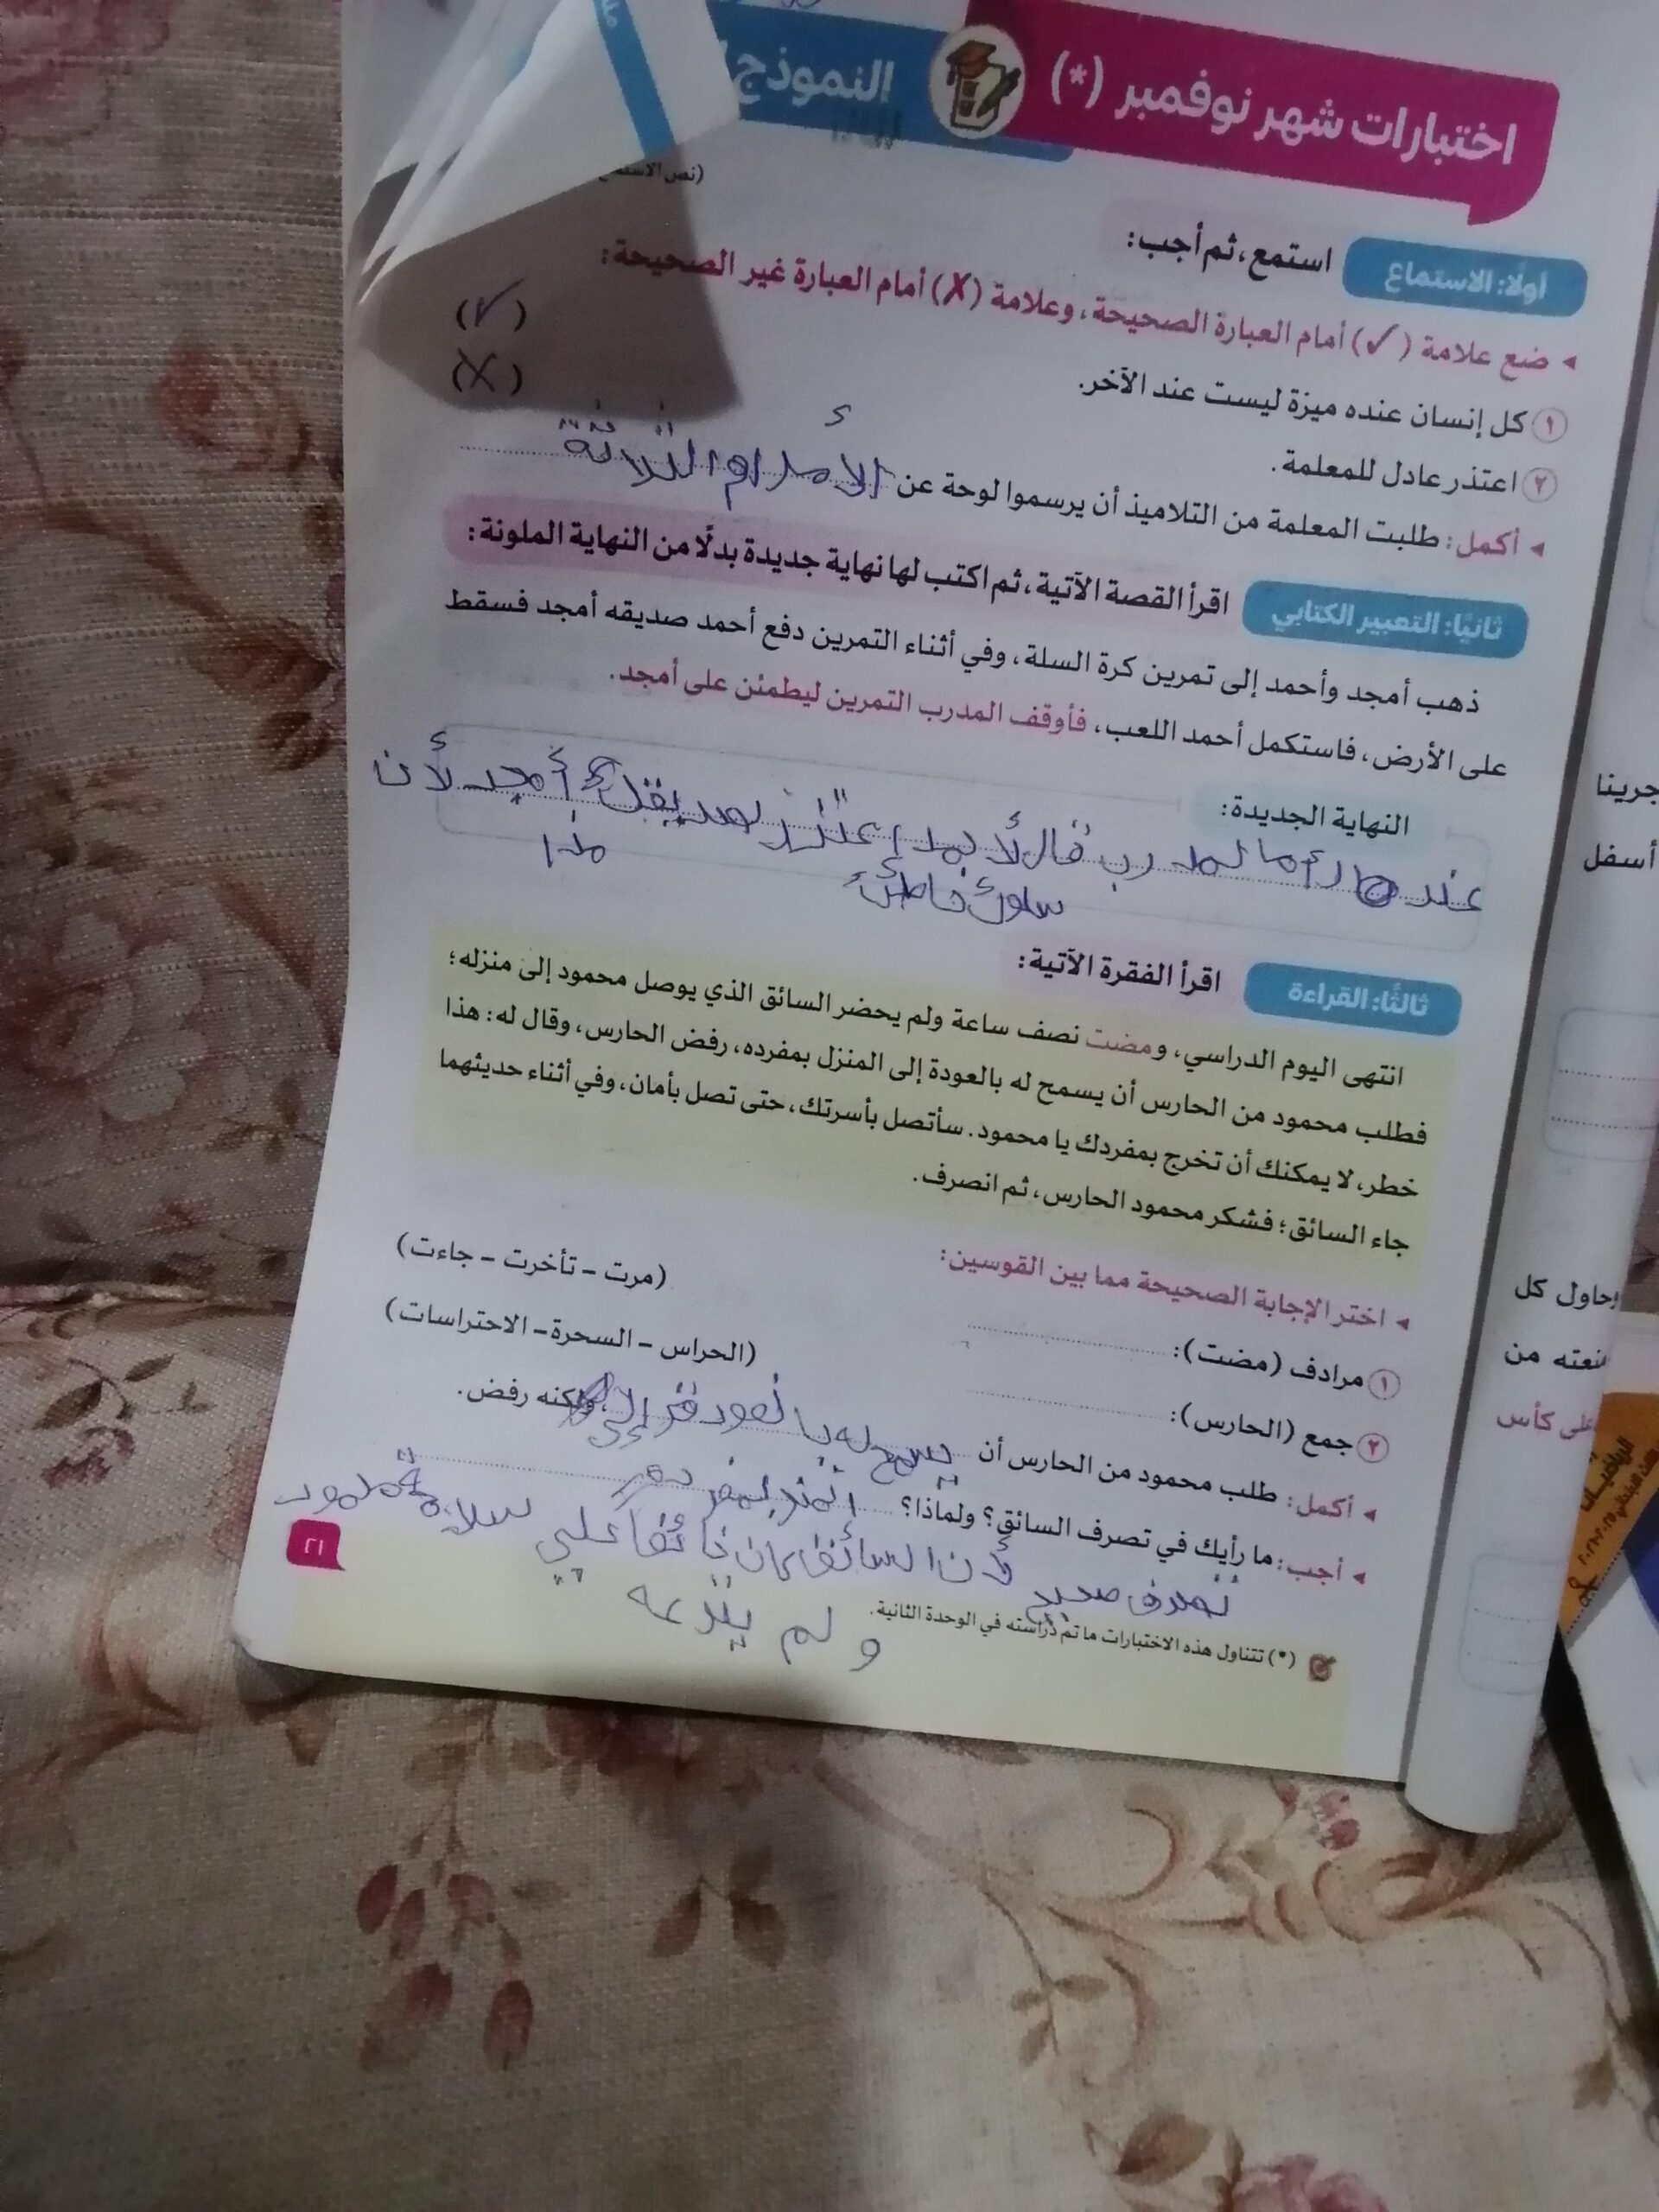 اختبارات شهر نوفمبر (*)
النموذج
(نص الاستماع
أولًا: الاستماع استمع، ثم أجب:
◂ ضع علامة (✓) أمام العبارة الصحيحة، وعلامة (✗) أمام العبارة غير الصحيحة:
١ كل إنسان عنده ميزة ليست عند الآخر. (✓)
٢ اعتذر عادل للمعلمة. (X)
◂ أكمل: طلبت المعلمة من التلاميذ أن يرسموا لوحة عن الثلاثة
ثانيًا: التعبير الكتابي اقرأ القصة الآتية، ثم اكتب لها نهاية جديدة بدلًا من النهاية الملونة:
ذهب أمجد وأحمد إلى تمرين كرة السلة، وفي أثناء التمرين دفع أحمد صديقه أمجد فسقط
على الأرض، فاستكمل أحمد اللعب، فأوقف المدرب التمرين ليطمئن على أمجد.
النهاية الجديدة:
عند المدرب قال أمجد لأن
هذا
سلوك خاطئ
ثالثًا: القراءة اقرأ الفقرة الآتية:
انتهى اليوم الدراسي، ومضت نصف ساعة ولم يحضر السائق الذي يوصل محمود إلى منزله؛
فطلب محمود من الحارس أن يسمح له بالعودة إلى المنزل بمفرده، رفض الحارس، وقال له: هذا
خطر، لا يمكنك أن تخرج بمفردك يا محمود. سأتصل بأسرتك، حتى تصل بأمان، وفي أثناء حديثهما
جاء السائق؛ فشكر محمود الحارس، ثم انصرف.
◂ اختر الإجابة الصحيحة مما بين القوسين:
١ مرادف (مضت): (مرت – تأخرت – جاءت)
٢ جمع (الحارس): (الحراس – السحرة – الاحتراسات)
◂ أكمل: طلب محمود من الحارس أن يسمح له ، ولكنه رفض.
بمفرده
◂ أجب: ما رأيك في تصرف السائق؟ ولماذا؟
تصرف صحيح لأن السائق كان سلامة محمود
ولم
(*) تتناول هذه الاختبارات ما تم دراسته في الوحدة الثانية.
٢١
جرينا
أسفل
على كأس